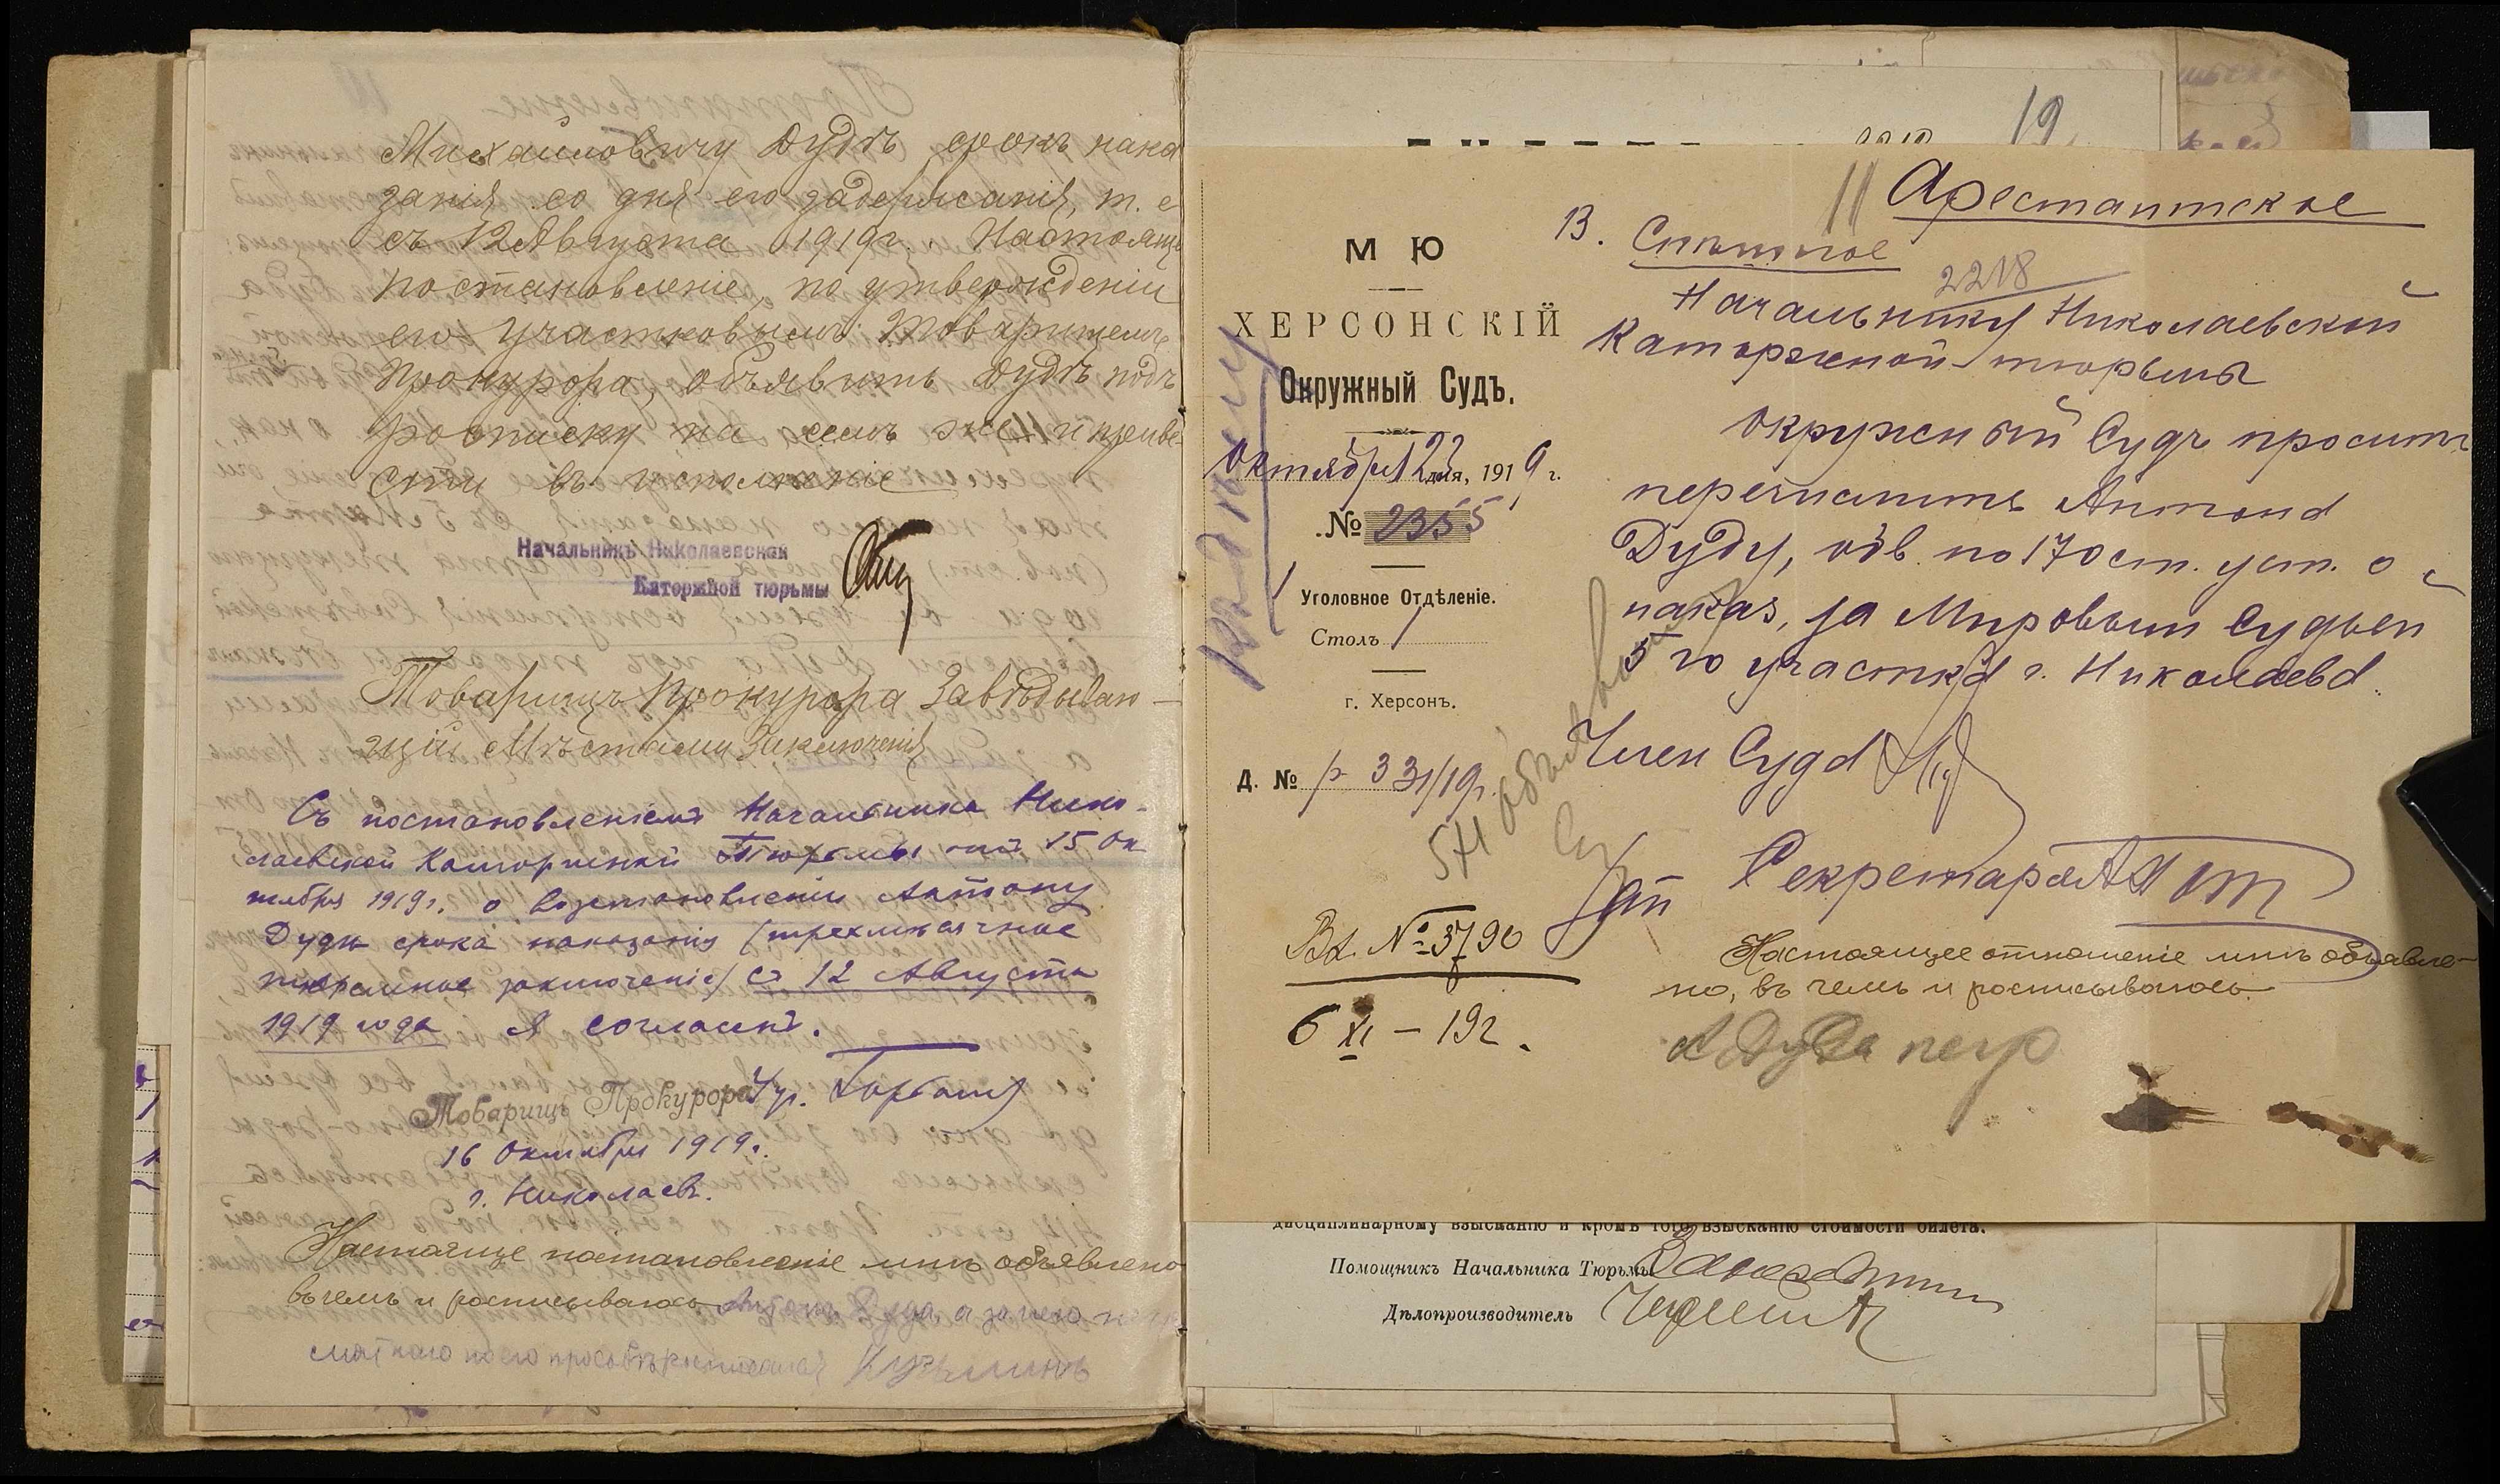 Михайловичу Дудѣ срокъ нака
занія со дня его задержанія, т. е
съ 12 Августа 1919 г. Настояще
постановленіе, по утвержденіи
его Участковымъ Товарищемъ
Прокурора, объявить Дудѣ подъ
росписку на семъ же и приве
сти въ исполненіе
Начальникъ Николаевской
Каторжной тюрьмы
Товарищъ Прокурора Завѣдываю-
щій Мѣстами Заключенія
Съ постановленіемъ Начальника Нико-
лаевской Каторжной Тюрьмы отъ 15 Ок
тября 1919 г. о возстановленіи Антону
Дудѣ срока наказанія (трехмѣсячное
тюремное заключеніе) съ 12 Августа
1919 года я согласенъ.
Товарищъ Прокурора
16 Октября 1919 г.
г. Николаевъ.
Настояще постановленіе мнѣ объявлено
въ чемъ и росписываюсь Антонъ Дуда а за него
по его просьбѣ Кузьминъ
19
11
Арестантское
В. Спѣшное
2218
Начальнику Николаевской
Каторжной тюрьмы
М Ю
ХЕРСОНСКІЙ
Окружный Судъ.
Октября 22 дня, 1919 г.
№ 2355
Уголовное Отдѣленіе.
Столъ 1
г. Херсонъ.
Д. № р 331/19 г.
Окружный Судъ проситъ
перечислить Антона
Дуду, обв. по 170 ст. уст. о
наказ, за Мировымъ Судьей
5 го участка г. Николаева.
Член Суда
Секретарь
Вх. № 3790
6 XI – 19 г.
Настоящее отношеніе мнѣ объявле-
но, въ чемъ и росписываюсь.
А Дуда
дисциплинарному взысканію и кромѣ того взысканію стоимости билета.
Помощникъ Начальника Тюрьмы
Дѣлопроизводитель